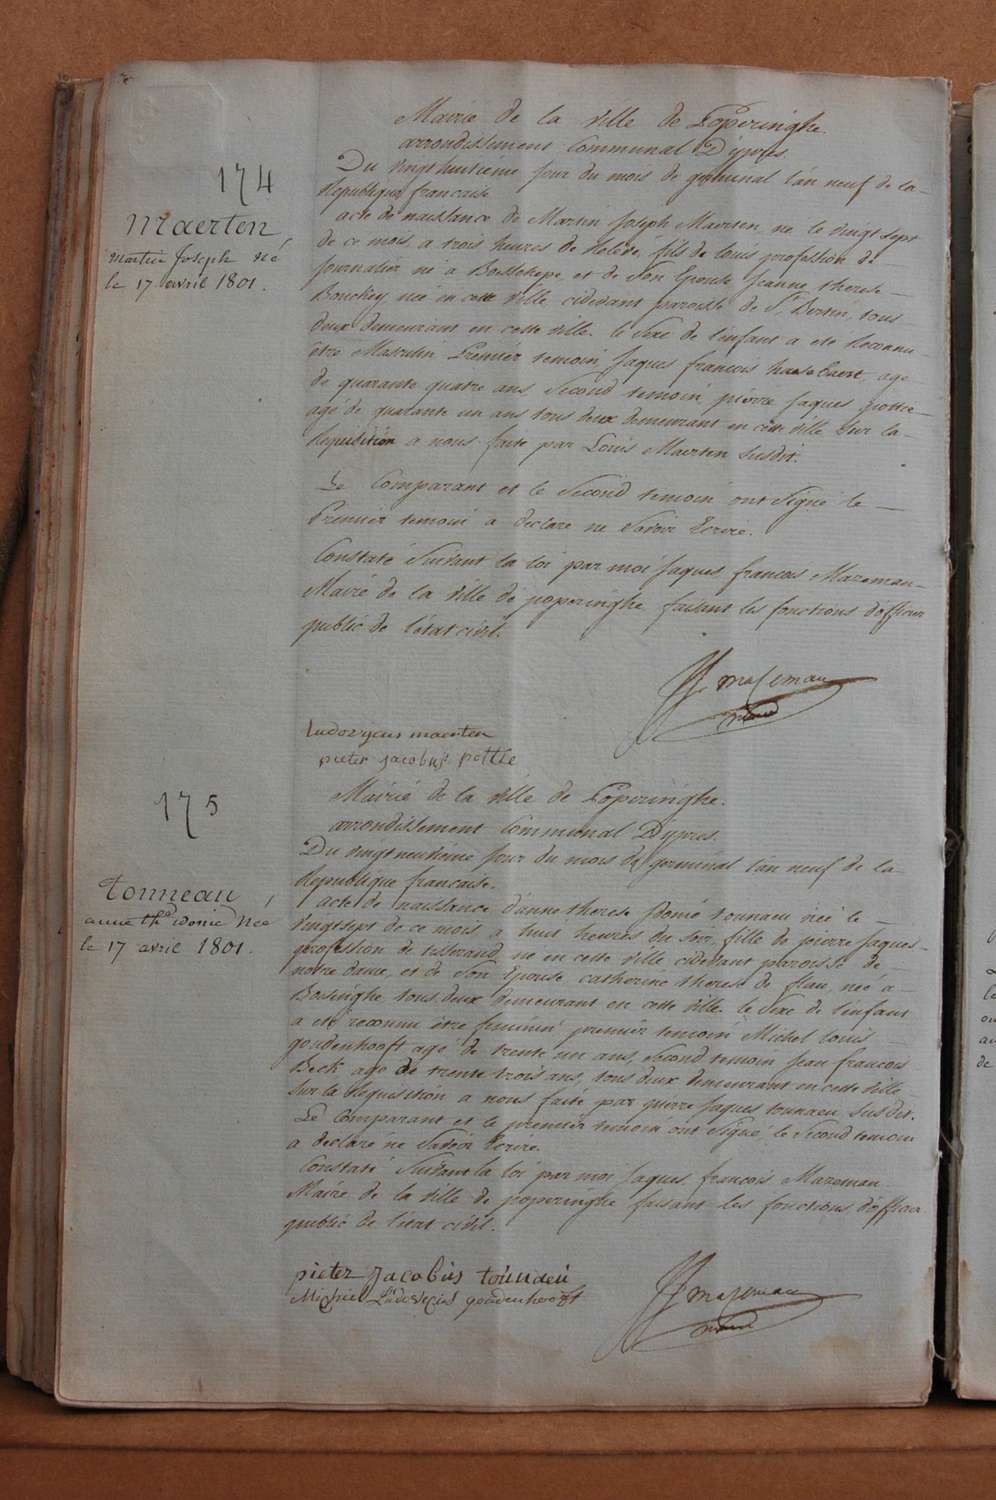 174
Maerten,
Martin Joseph né
le 17 avril 1801.
Mairie de la ville de Poperinghe.
arrondissement Communal D'ypres.
Du vingt huitieme jour du mois de germinal l'an neuf de la
Republique francaise
acte de naissance de Martin Joseph Maerten, né le vingt sept
de ce mois, a trois heures de fils de louis profession de
Journalier né a et de son Epouse Jeanne therese
Bouckey, neé en cette ville cidevant paroisse de St. Bertin, tous
deux demeurant en cette ville. le sexe de l'enfant a eté reconnu
être Masculin Premier temoin Jaques francois agé
de quarante quatre ans, second temoin, pierre Jaques pottie
agé de quarante un ans, tous deux demeurant en cette ville sur la
Requisition a nous faite par Louis Maerten susdit.
Le Comparant et le second temoin ont signé le
Premier temoin a declaré ne savoir Ecrire.
Constaté suivant la loi par moi Jaques francois Mazeman
Maire de la ville de poperinghe, faisant les fonctions d'officier
public de l'état civil.
mazeman
maire
Ludovycus maerten
pieter jacobus pottie
175
Tonneau,
anne thse donie Née
le 17 avril 1801.
Mairie de la ville de Poperinghe.
arrondissement Communal D'ypres.
Du vingt neuvieme jour du mois de germinal l'an neuf de la
Republique francaise.
acte de naissance d'anne therese tonneau neé le
vingt sept de ce mois a huit heures du soir, fille de pierre Jaques
profession de tisserand, né en cette ville cidevant paroisse de
notre dame, et de son Epouse catherine therese de neé a
Boesinghe tous deux demeurant en cette ville. le sexe de l'enfant
a eté reconnu être feminin premier temoin Michel louis
goudenhooft agé de trente un ans, second temoin Jean francois
Beck agé de trente trois ans, tous deux demeurant en cette ville
sur la Requisition a nous faite par pierre Jaques tonneau susdit.
Le Comparant et le premier temoin ont signé, le second temoin
a declaré ne savoir Ecrire.
Constaté suivant la loi par moi Jaques francois Mazeman
Maire de la ville de poperinghe faisant les fonctions d'officier
public de l'état civil.
pieter Jacobus tonneau
Michiel Ludovicus goudenhooft
mazeman
maire